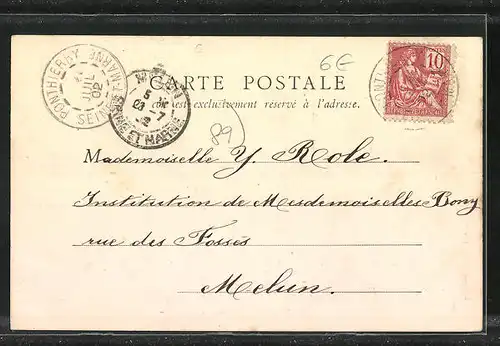 PONTHIERRY
JUIL
02
SEINE & MARNE
CARTE POSTALE
Ce côté est exclusivement réservé à l'adresse.
6E
10
MELUN
SEINE ET MARNE
89
Mademoiselle Y. Role.
Institution de Mesdemoiselles Bony
rue des Fossés
Melun.